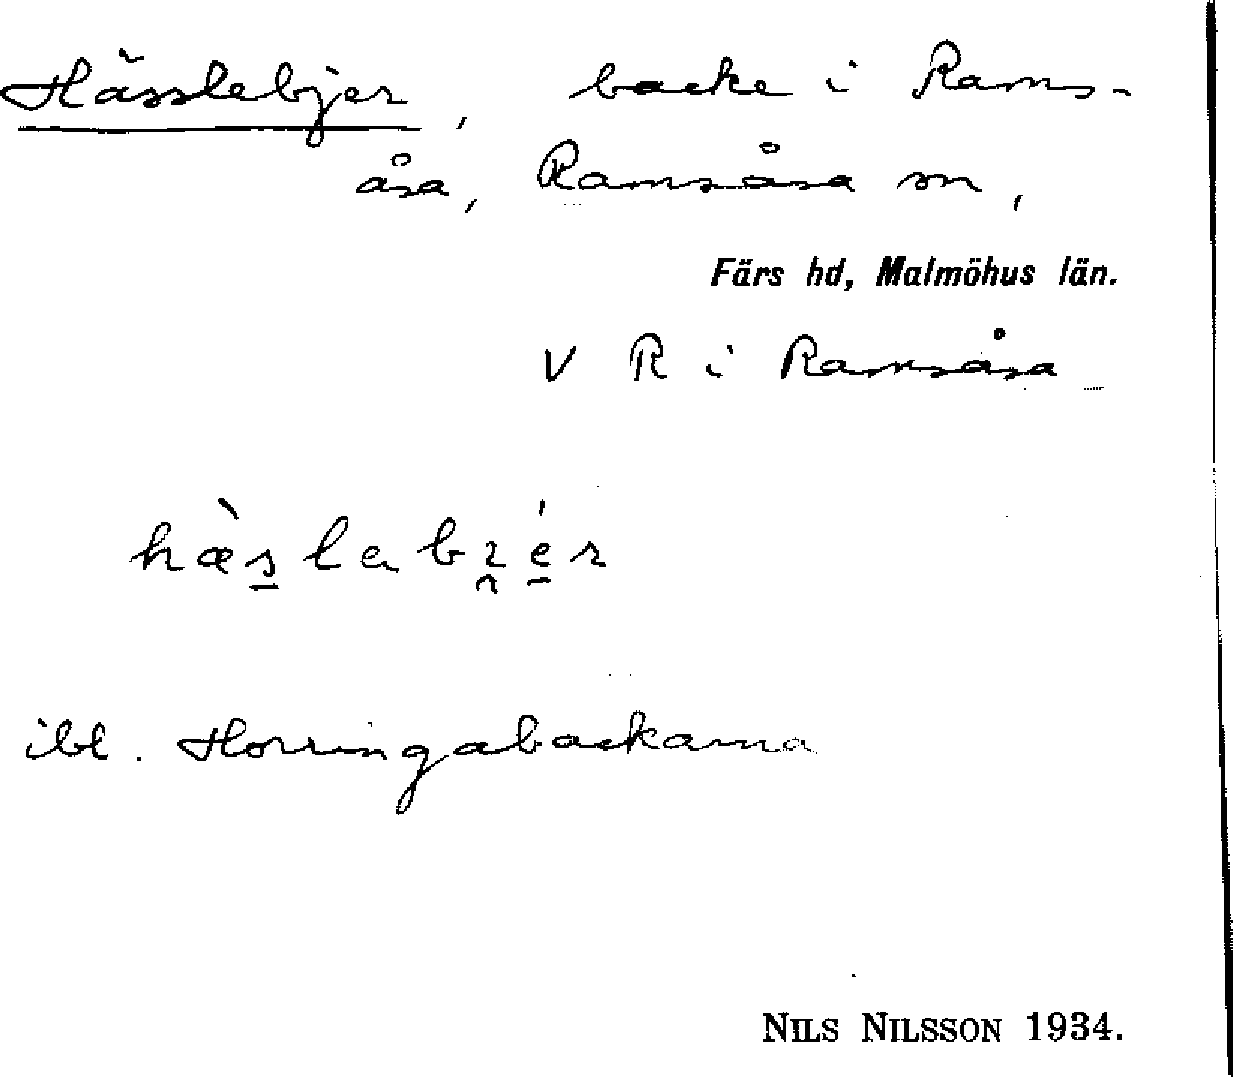 Hässlebjer, backe i Rams-
åsa, Ramsåsa sn,
Färs hd, Malmöhus län.
V R i Ramsåsa
ibl. Horringabackarna
NILS NILSSON 1934.